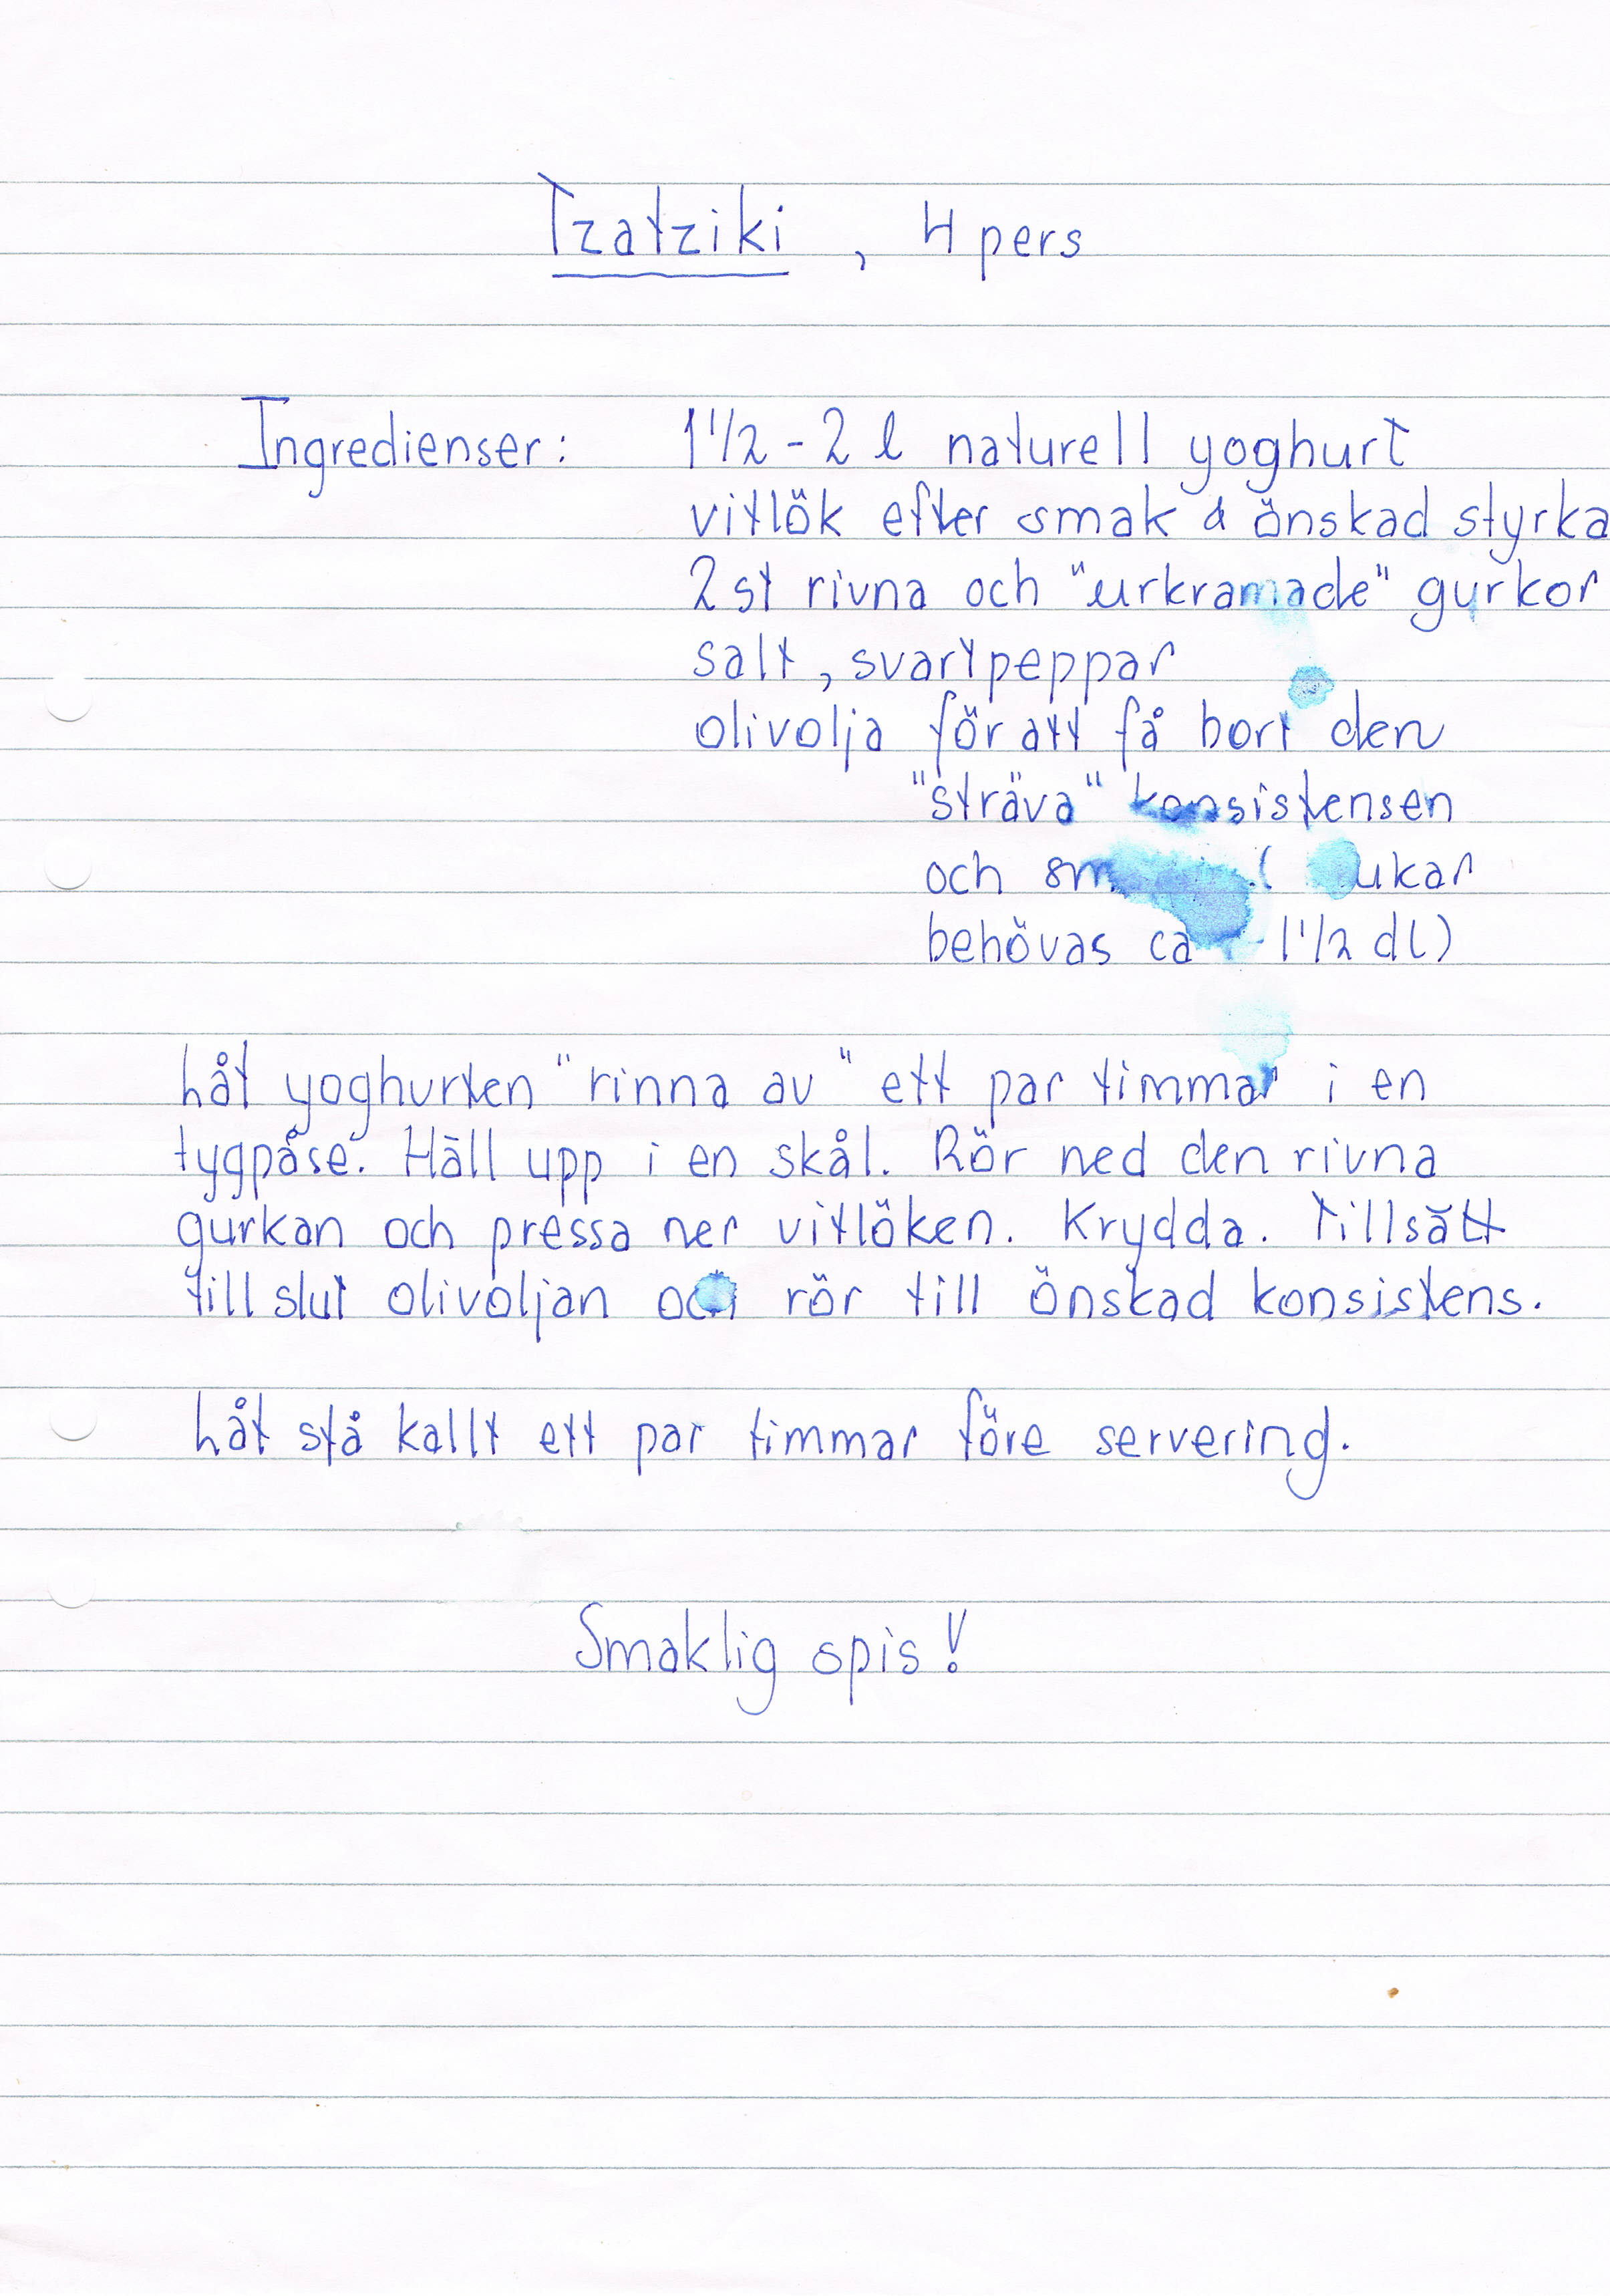 Tzatziki, 4 pers
Ingredienser: 1 1/2 - 2 l naturell yoghurt
vitlök efter smak & önskad styrka
2 st rivna och "urkramade" gurkor
salt, svartpeppar
olivolja för att få bort den
"sträva" konsistensen
och
behövas ca 1 1/2 dl)
Låt yoghurten "rinna av" ett par timmar i en
tygpåse. Häll upp i en skål. Rör ned den rivna
gurkan och pressa ner vitlöken. Krydda. Tillsätt
till slut olivoljan och rör till önskad konsistens.
Låt stå kallt ett par timmar före servering.
Smaklig spis!